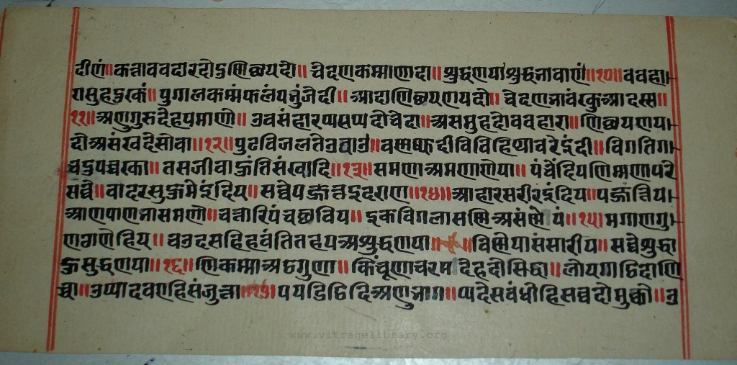 दीणं॥कत्ताववहारदोदुणिछयदो॥चेदणकम्माणादा॥शुद्धणयाशुद्धभावाणं॥१०॥ववहा
रासुहदुरकं॥पुग्गलकम्मंफलंपभुंजेदी॥आदाणिछयणयदो॥चेदणभावंरकुआदस्स॥
११॥अणुगुरुदेहपमाणो॥उवसंहारप्पसप्पदोचेदा॥असमुहदोववहारा॥णिछयणया
दोअसंखदेसोवा॥१२॥पुढविजलतेउवाउ॥वणप्फदीविविहथावरेइंदी॥विगतिग
चदुपंचरका॥तसजीवाहुंतिसंखादि॥१३॥समणाअमणाणेया॥पंचेंदियणिम्मणापरे
सव्वे॥बादरसुहमेइंदिय॥सव्वेपज्जत्तइदराण॥१४॥आहारसरीरइंदिय॥पज्जत्तिय
आणपाणभासमणो॥चत्तारिपंचछव्विय॥इकविगलासण्णिअसण्णीयं॥१५॥मगाणगु
णठाणेहिय॥चउदसहिहवंतितहयअशुद्धणया॥विण्णेयासंसारीय॥सव्वेशुद्धा
हुसुद्धणया॥१६॥णिकम्माअठगुणा॥किंचूणाचरमदेहदोसिद्धा॥लोयगाठिदाणि
च्चा॥उप्पादवएहिसंजुत्ता॥१७॥पयडिठिदिअणुभाग॥प्पदेसबंधेहिसव्वदोमुक्को॥उ
www.vitragelibrary.org